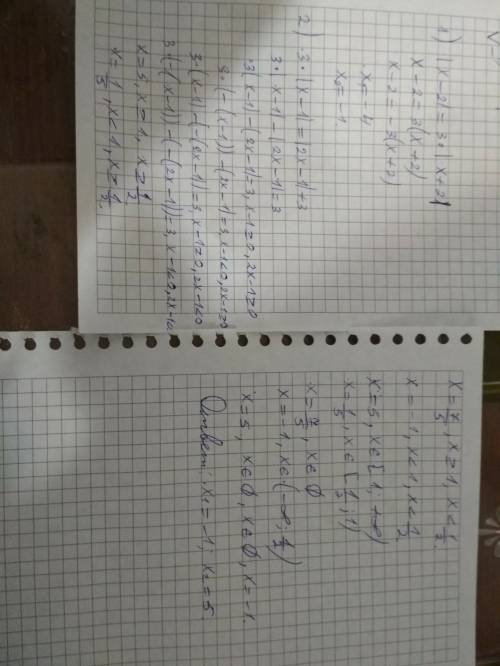 1) |x-2| = 3·|x+2|
x-2=3(x+2)
x-2=-3(x+2)
x₁=-4
x₂=-1
2) 3·|x-1|=|2x-1|+3
3·|x-1|-|2x-1|=3
3(x-1)-(2x-1)=3, x-1≥0, 2x-1≥0
3·(-(x-1))-(2x-1)=3, x-1<0, 2x-1≥0
3·(x-1)-(-(2x-1))=3, x-1≥0, 2x-1<0
3·(-(x-1))-(-(2x-1))=3, x-1<0, 2x-1<0
x=5, x≥1, x≥1/2
x=1/5, x<1, x≥1/2
x=7/5, x≥1, x<1/2
x=-1, x<1, x<1/2
x=5, x∈[1; +∞)
x=1/5, x∈[1/2; 1)
x=7/5, x∈∅
x=-1, x∈(-∞; 1/2)
x=5, x∈∅, x∈∅, x=-1
Ответ: x₁=-1; x₂=5